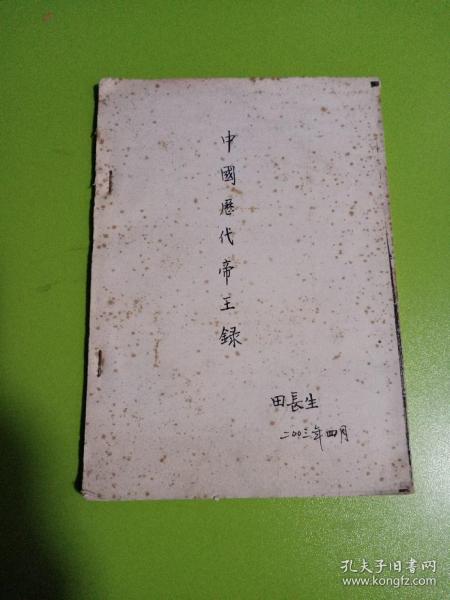 中國歷代帝王録
田長生
二00三年四月
孔夫子旧书网
www.kongfz.com